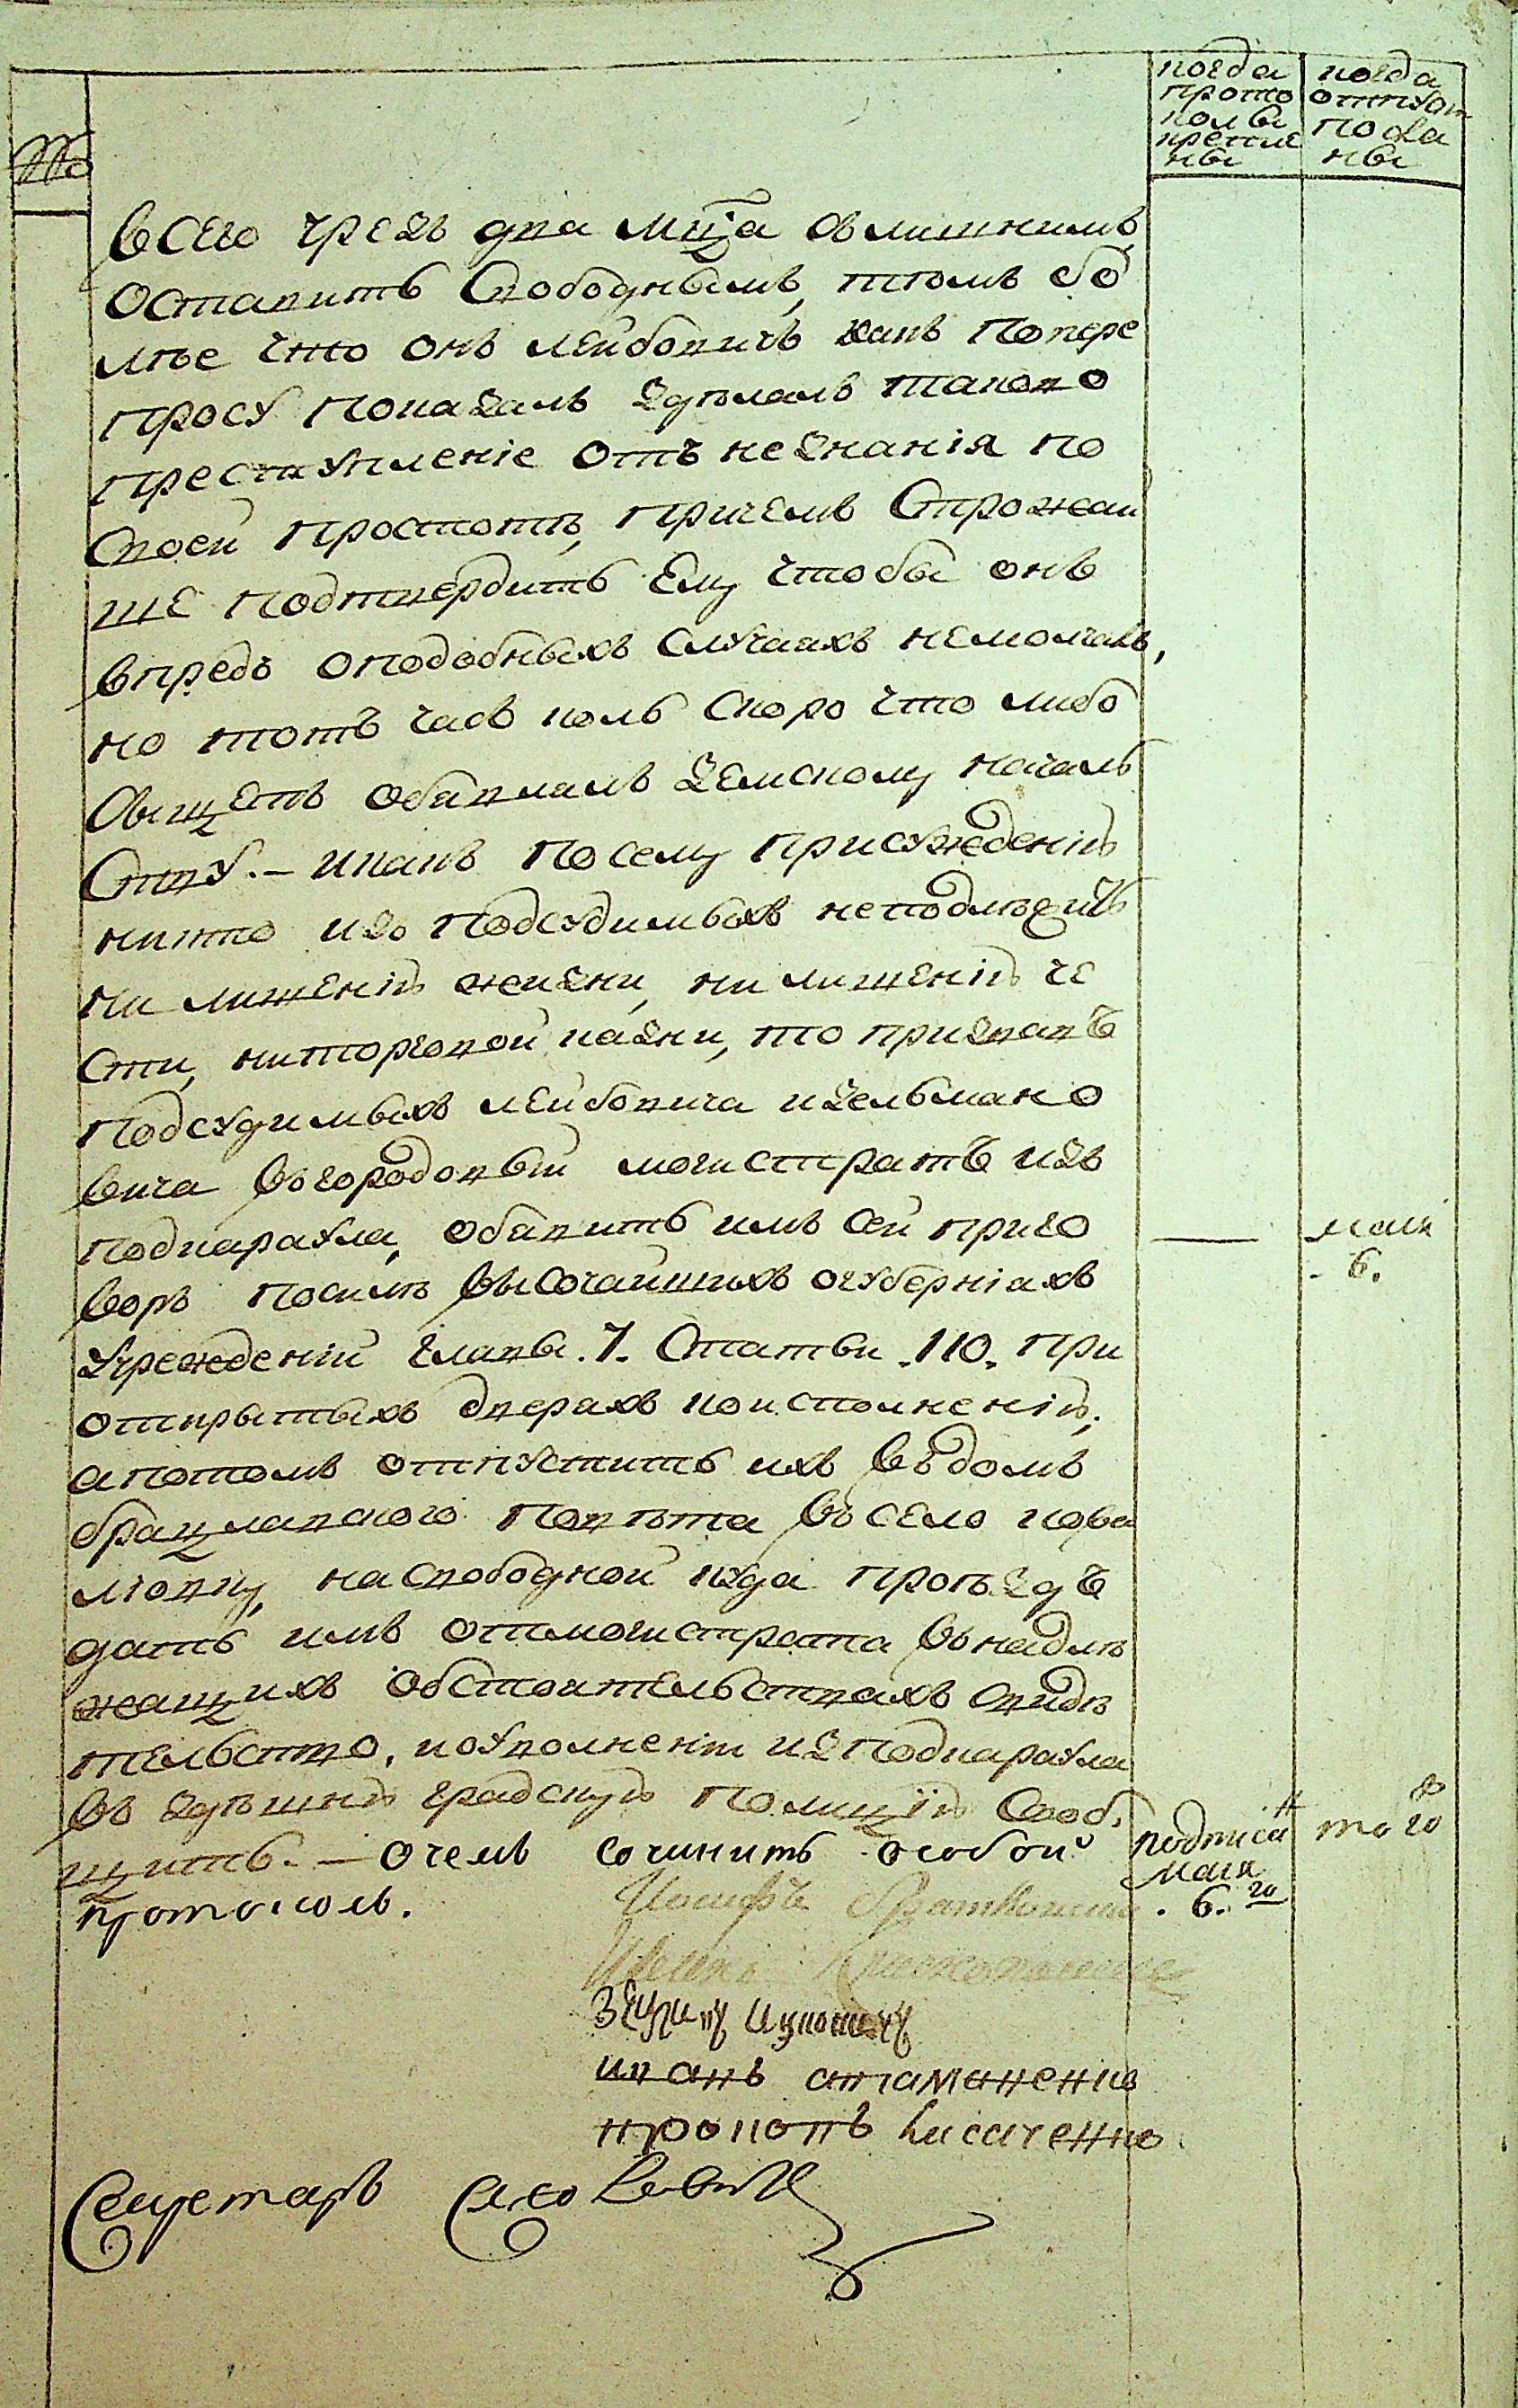 когда
прото
колы
крепле
ны
когда
отпуски
посла
ны
№
всего чрезъ два мцa слишкимъ
оставить свободнымъ, темъ бо
лѣе что онъ лейбовичъ какъ попере
просу показалъ зделалъ таково
преступленіе отъ незнанія по
своей простотѣ, причемъ строжай
ше подтвердить ему чтобы онъ
впредъ оподобныхъ случаяхъ немолчалъ,
но тотъ часъ коль скоро что либо
сыщетъ объявлалъ земскому началь
ству. – икакъ посему присужденію
никто изъ подсудимыхъ неподлежитъ
ни лишенію жизни, ни лишенію че
сти, ниторговой казни, то призвавъ
подсудимыхъ лейбовича изельмано
вича въгородовый магистратъ изъ
подкараула, объявить имъ сей приго
воръ посилѣ высочайшихъ огуберніяхъ
учрежденій главы. 7. статьи. 110. при
открытыхъ дверяхъ коисполненію,
апотомъ отпустить ихъ въ домъ
брацлавского повѣта въ село кова
лювку, насвободной куда проѣздъ
дать имъ отмагистрата внадлѣ
жащихъ обстоятельствахъ свидѣ
тельство, иоуволненіи изподкараула
въ здѣшнюю градскую полицію сооб.
щить. – очемъ сочинить особой
протоколъ.
маия
6.
подписан
маия
6. го
того
иванъ атаманенко
прокопъ лисаченко
Секретарь